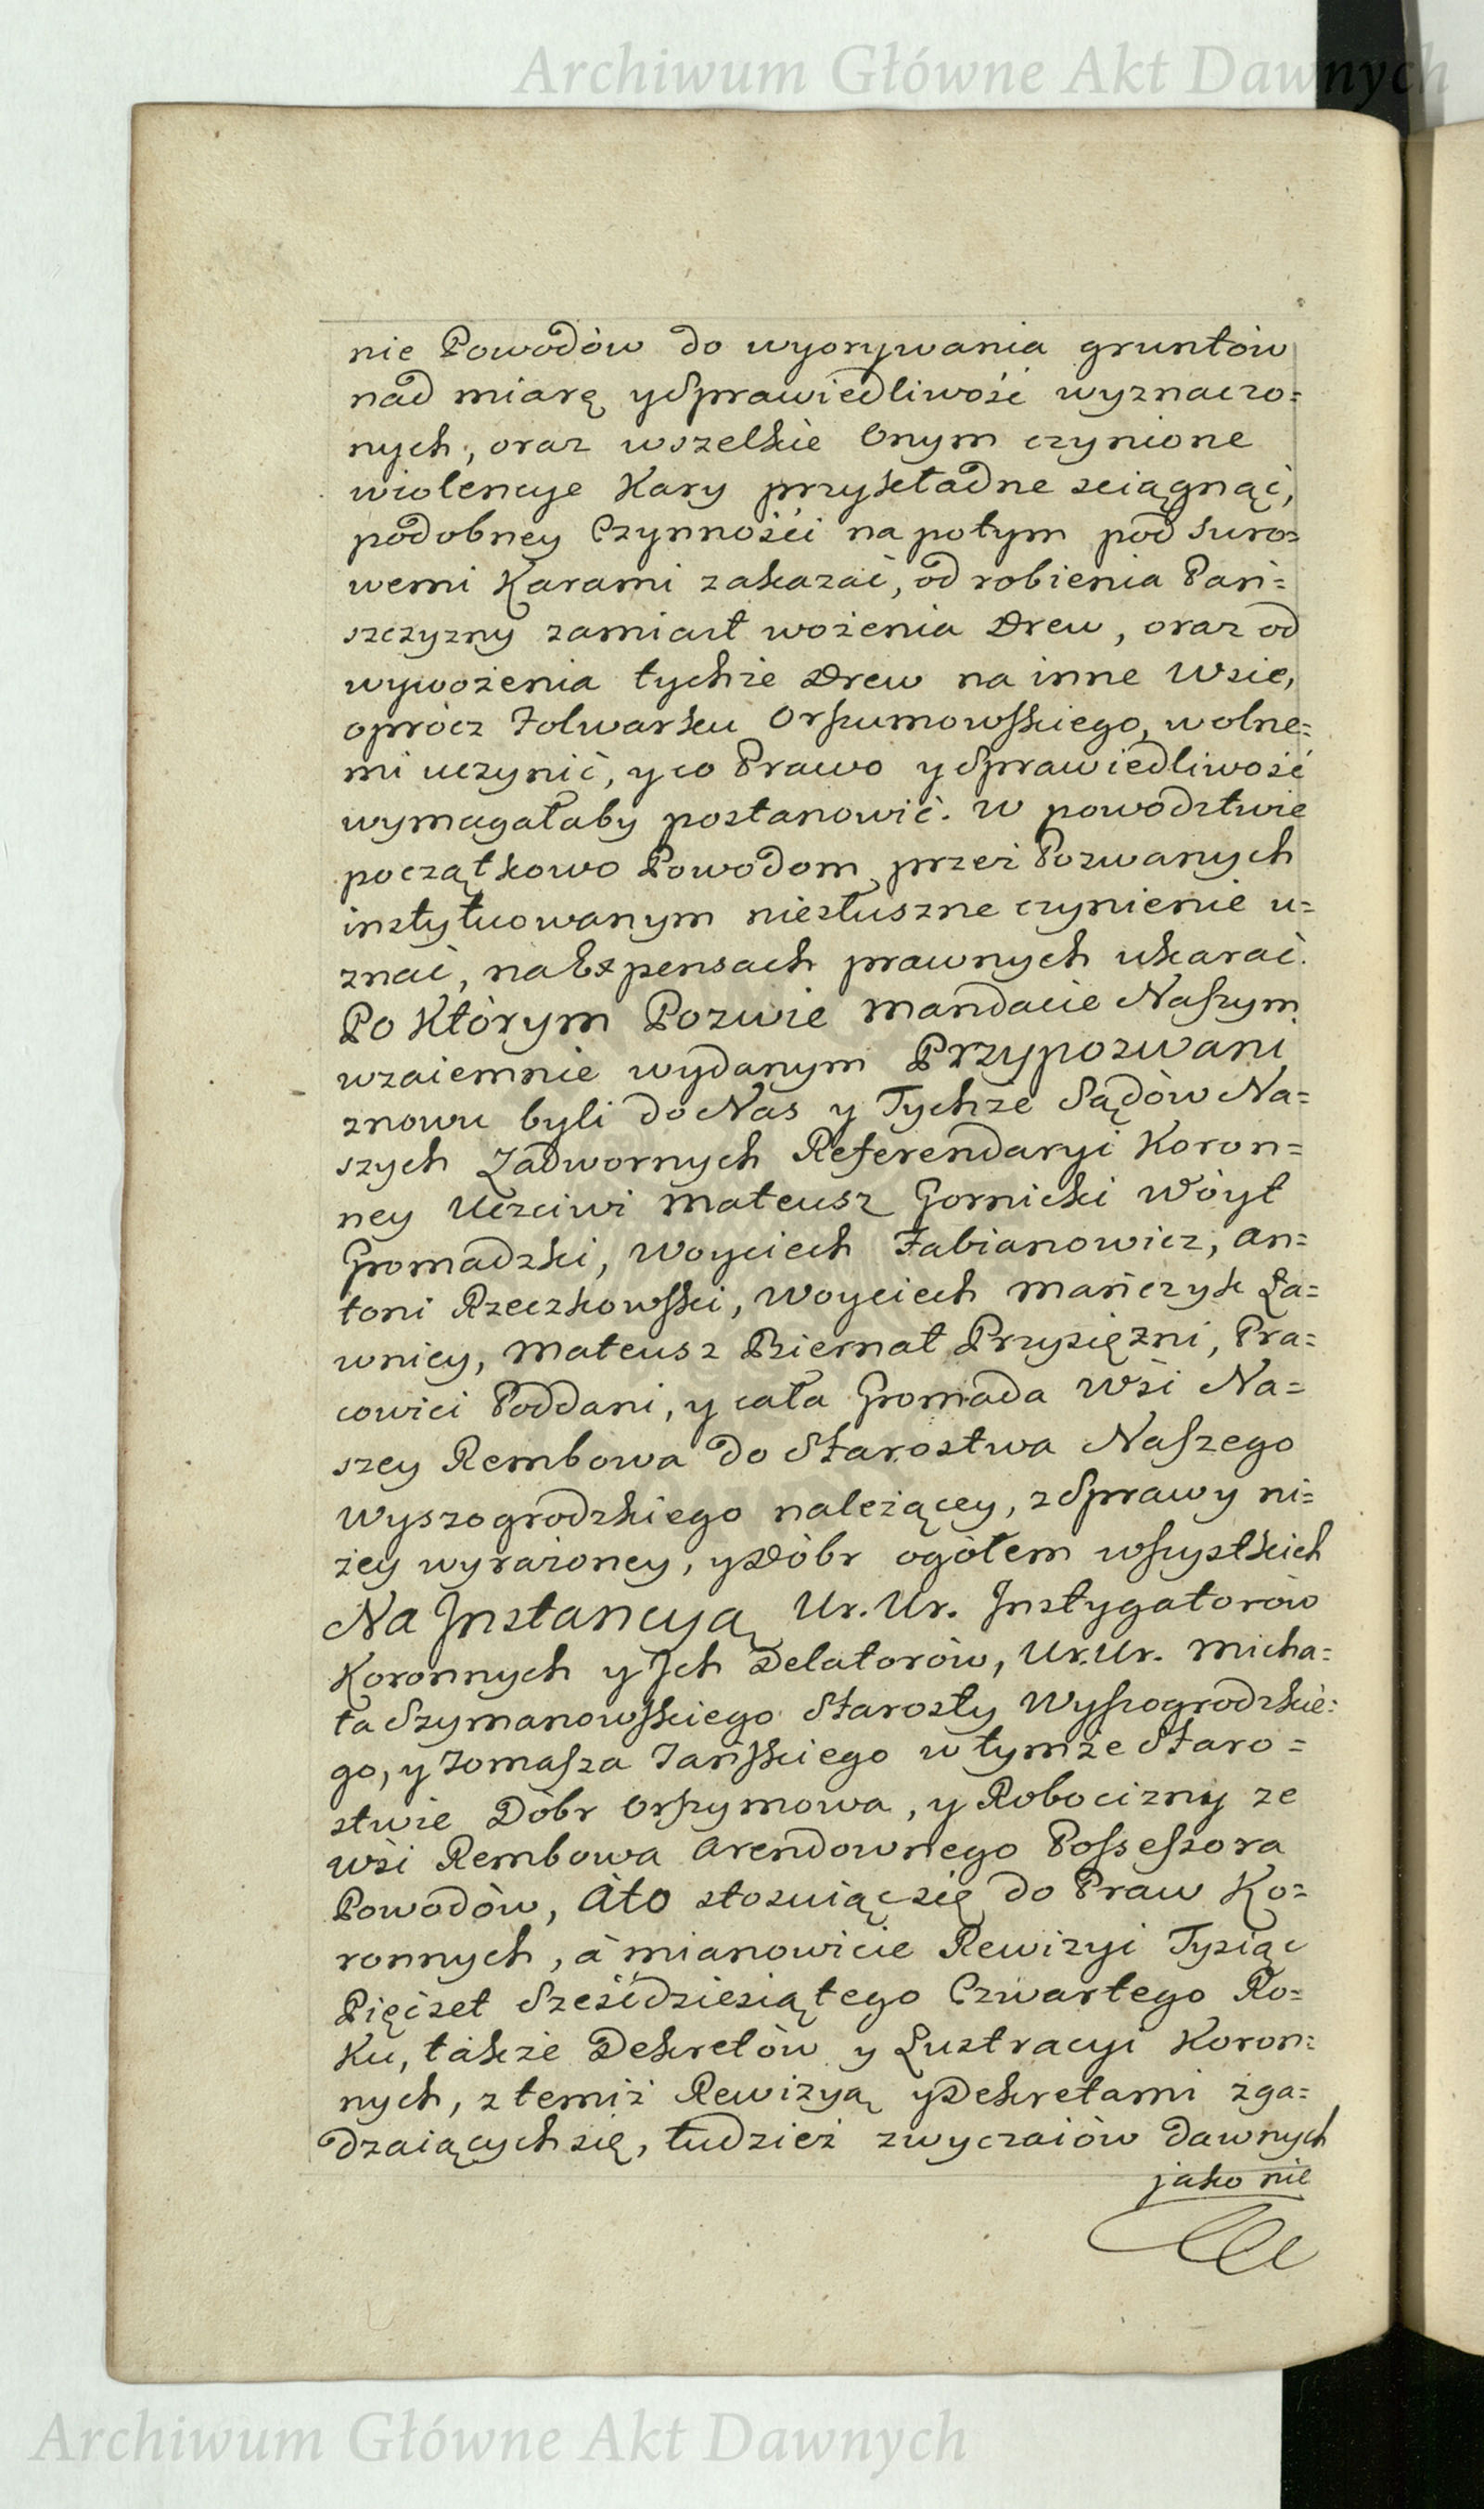 Archiwum Główne Akt Dawnych
nie Powodów do wyorywania gruntów
nad miarę y Sprawiedliwość wyznaczo=
nych, oraz wszelkie Onym czynione
wiolencye Kary przykładne sciągnąć,
podobney Czynności na potym pod suro=
wemi Karami zakazać, od robienia Pań=
szczyzny zamiast wożenia Drew, oraz od
wywożenia tychże Drew na inne Wsie,
oprócz Folwarku Orszumowskiego, wolne=
mi uczynić, y co Prawo y Sprawiedliwość
wymagałaby postanowić. W powodztwie
początkowo Powodom przez Pozwanych
instytuowanym niesłuszne czynienie u=
znać, na Expensach prawnych ukarać.
Po Którym Pozwie Mandacie Naszym
wzaiemnie wydanym Przypozwani
znowu byli do Nas y Tychże Sądów Na=
szych Zadwornych Referendaryi Koron=
ney Uczciwi Mateusz Gornicki Wóyt
Gromadzki, Woyciech Fabianowicz, An=
toni Rzeczkowski, Woyciech Mańczyk Ła=
wnicy, Mateusz Biernat Przysiężni, Pra=
cowici Poddani, y cała Gromada Wsi Na=
szey Rembowa do Starostwa Naszego
Wyszogrodzkiego należącey, z Sprawy ni=
żey wyrażoney, y Dóbr ogółem wszystkich
Na Jnstancyą Ur. Ur. Jnstygatorów
Koronnych y Jch Delatorów, Ur. Ur. Micha=
ła Szymanowskiego Starosty Wyszogrodzkie=
go, y Tomasza Jańskiego w tymże Staro=
stwie Dóbr Orszymowa, y Robocizny ze
wsi Rembowa Arendownego Possessora
Powodów, Ato stosuiąc się do Praw Ko=
ronnych, à mianowicie Rewizyi Tysiąc
Pięćset Sześćdziesiątego Czwartego Ro=
Ku, także Dekretów y Lustracyi Koron=
nych, z temiż Rewizyą y Dekretami zga=
dzaiących się, tudzież zwyczaiów dawnych
jako nie
Archiwum Główne Akt Dawnych